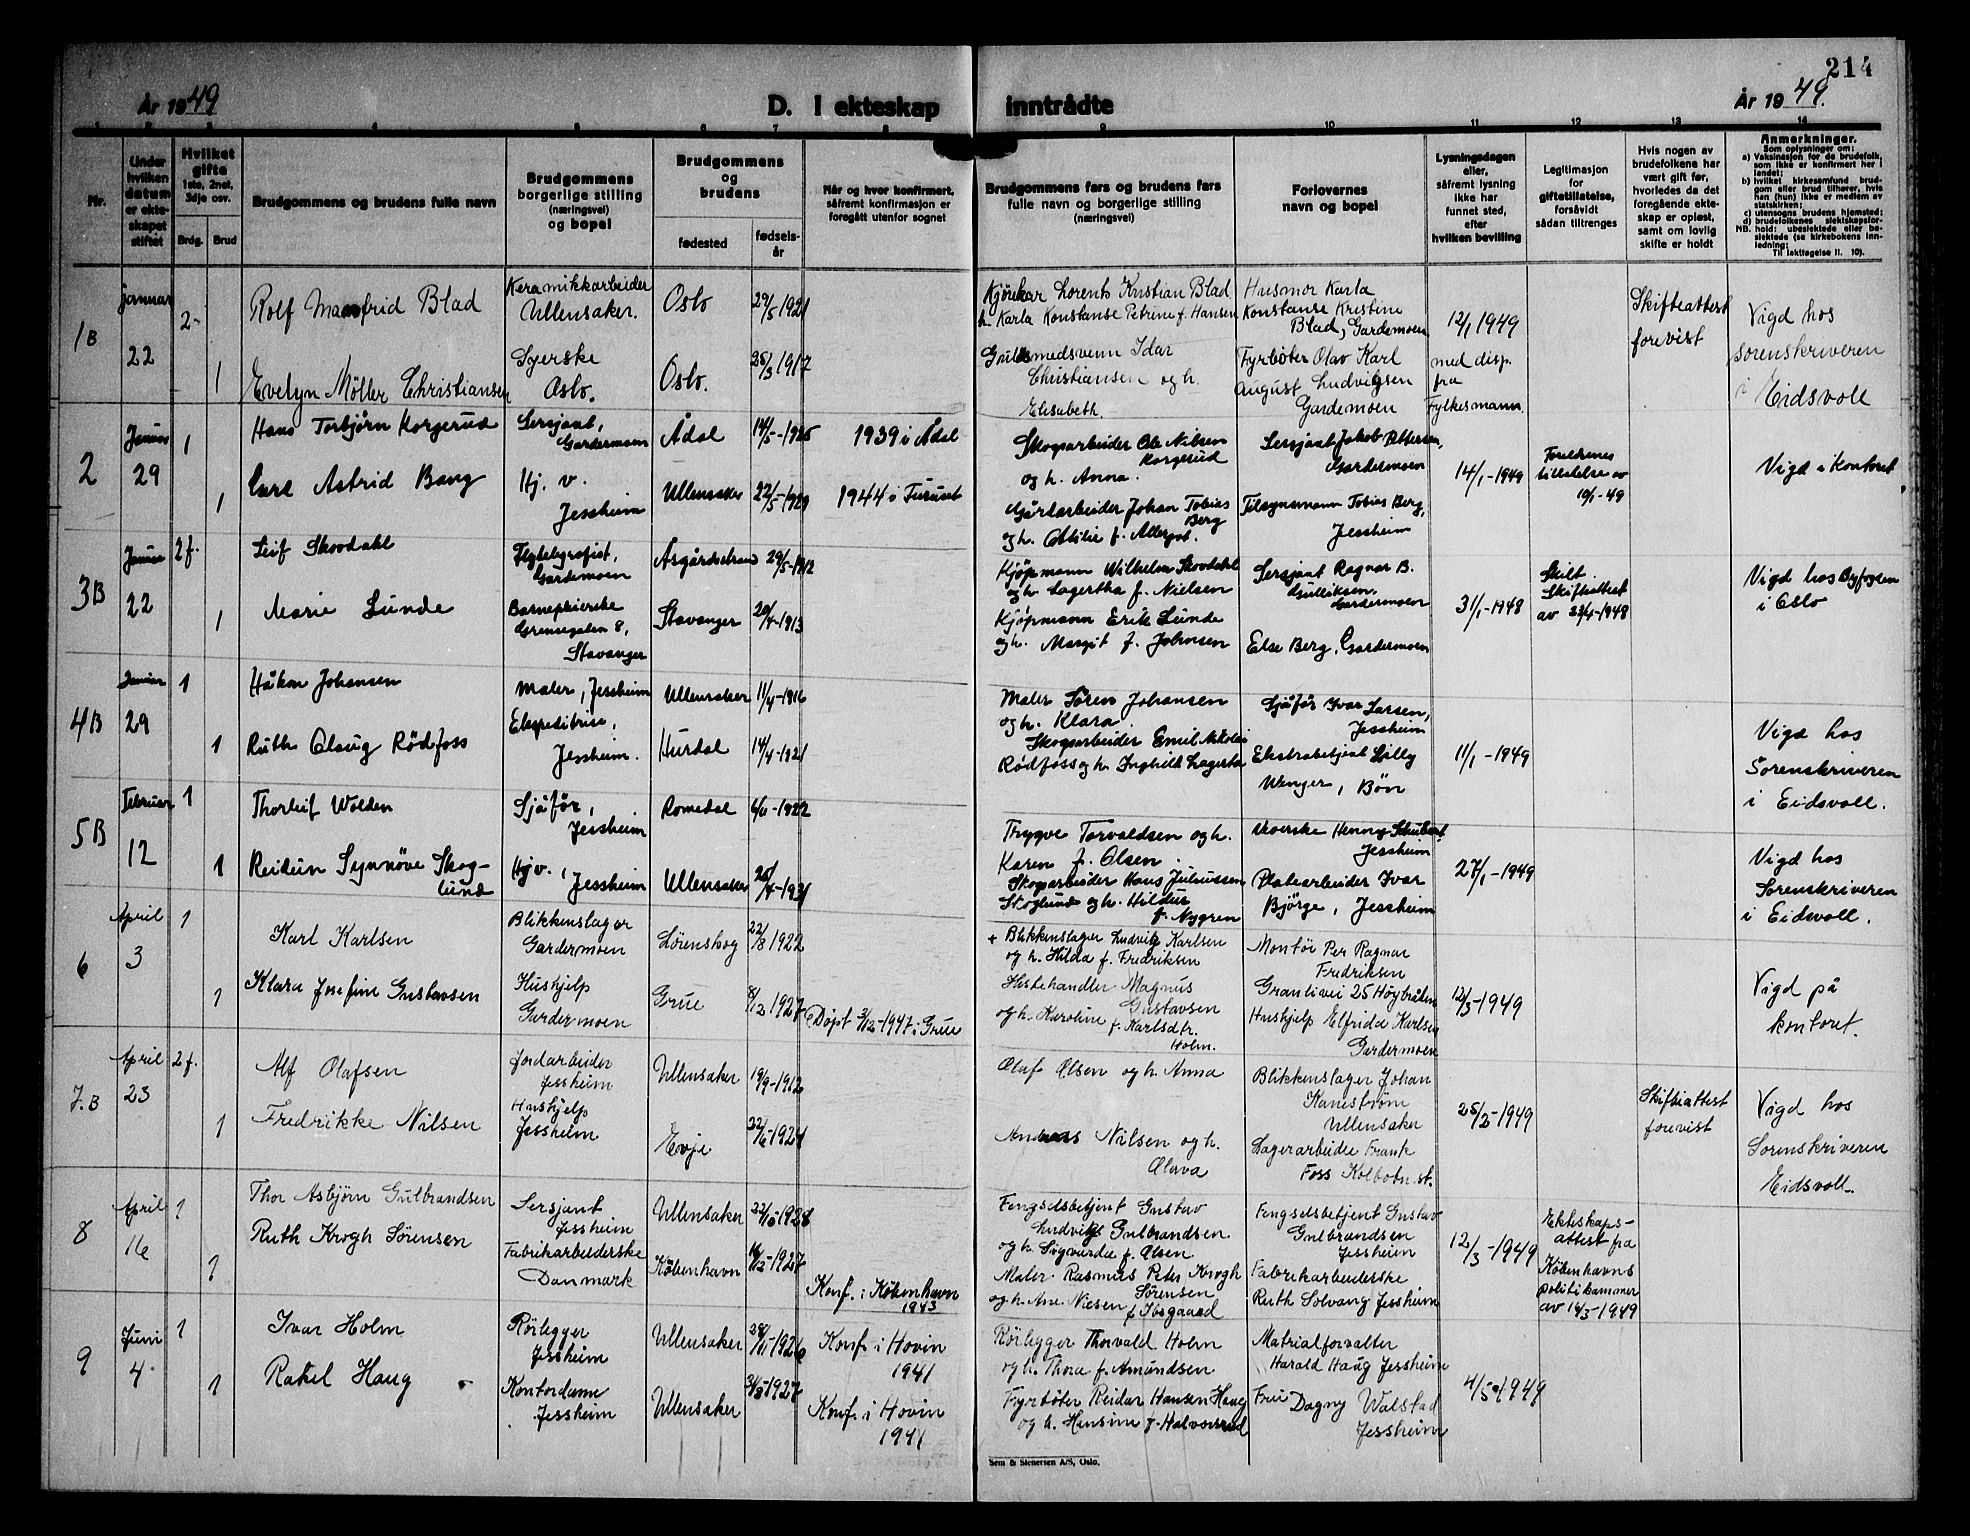 214
År 1949
D. I ekteskap
inntrådte
År 1949.
1 2 3 4 5 6 7 8 9 10 11 12 13 14
Nr.
Under
hvilken
datum
er ekte-
skapet
stiftet
Hvilket
gifte
1ste, 2net,
3dje osv.
Brdg.
Brud
Brudgommens og brudens fulle navn
Brudgommens
borgerlige stilling
(næringsvei)
og bopel
Brudgommens
og
brudens
fødested
fødsels-
år
Når og hvor konfirmert,
såfremt konfirmasjon er
foregått utenfor sognet
Brudgommens fars og brudens fars
fulle navn og borgerlige stilling
(næringsvei)
Forlovernes
navn og bopel
Lysningsdagen
eller,
såfremt lysning
ikke har
funnet sted,
efter
hvilken bevilling
Legitimasjon
for
giftetillatelse,
forsåvidt
sådan tiltrenges
Hvis nogen av
brudefolkene har
vært gift før,
hvorledes da det
foregående ekte-
skap er opløst,
samt om lovlig
skifte er holdt
Anmerkninger.
Som oplysninger om:
a) Vaksinasjon for de brudefolk,
som ikke er konfirmert her i
landet;
b) hvilket kirkesamfund brud-
gom eller brud tilhører, hvis
han (hun) ikke er medlem av
statskirken;
c) utensogns brudens hjemsted;
d) brudefolkenes slektskapsfor-
NB. hold: ubeslektede eller be-
slektede (se kirkebokens inn-
ledning;
Til iakttagelse II. 10).
1B
januar
22
2-
1
Rolf Manfrid Blad
Evelyn Möller Christiansen
Keramikkarbeider
Ullensaker.
Syerske
Oslo.
Oslo
Oslo.
29/5 1921
25/3 1917
Kjörekar Lorents Kristian Blad
h. Karla Konstanse Petrine f. Hansen
Gullsmedsvenn Idar
Christiansen og h.
Elisabeth.
Husmor Karla
Konstanse Kristine
Blad, Gardemoen
Fyrbøter Olav Karl
August Ludvigsen
Gardemoen
12/1 1949
med disp.
fra
Fylkesmann.
Skifteattest
forevist
Vigd hos
sorenskriveren
i Eidsvoll
2
Januar
29
1
1
Hans Torbjörn Korgerud
Astrid Bang
Sersjant,
Gardermoen
Hj. v.
Jessheim
Ådal
Ullensaker
14/5-1925
22/5-1929
1939 i Ådal
1944 i Furuset
Skogsarbeider Ole Nilsen
Korgerud
og h. Anna.
Gårdarbeider Johan Tobias
Berg
og h. Ottilie f.
Sersjant Jakob Pettersen,
Gardermoen
Tilsynsmann Tobias Berg,
Jessheim
14/1-1949
Foreldrenes
tillatelse av
10/1-49
Vigd i kontoret
3B
Januar
22
2 f.
1
Leif Skovdahl
Marie Lunde
Flytelegrafist,
Gardemoen
Barnepleierske
Grensegaten 8,
Stavanger
Åsgårdstrand
Stavanger
29/5-1912
20/4-1913
Kjøpmann Wilhelm Skovdahl
og h. Lagertha f. Nielsen
Kjøpmann Erik Lunde
og h. Margit f. Johnsen
Sersjant Ragnar B.
Gulliksen,
Gardermoen
Else Berg, Gardermoen
31/1-1948
Skilt
Skifteattest
av 23/4-1948
Vigd hos Byfogden
i Oslo
4B
Januar
29
1
1
Håkon Johansen
Ruth Olaug Rödfoss
Maler, Jessheim
Ekspeditrise,
Jessheim.
Ullensaker
Hurdal
11/4-1916
14/4-1921
Maler Sören Johansen
og h. Klara.
Skogsarbeider Emil Nikolai
Rödfoss og h. Inghild Lagerta
Sjåför Ivar Larsen,
Jessheim
Ekstrabetjent Lilly
Wenger, Bön
11/1-1949
Vigd hos
Sorenskriveren
i Eidsvoll.
5B
Februar
12
1
1
Thorleif Wolden
Reidun Synnöve Skog-
lund
Sjåför,
Jessheim
Hj v.,
Jessheim
Romedal
Ullensaker
6/11-1922
26/4-1931
Trygve Torvaldsen og h.
Karen f. Olsen.
Skogsarbeider Hans Juliussen
Skoglund og h. Hildur
f. Nygren
Henny Schubert,
Jessheim
Platearbeider Ivar
Björge, Jessheim
27/1-1949
Vigd hos
Sorenskriveren
i Eidsvoll.
6
April
3
1
1
Karl Karlsen
Klara Josefine Gustavsen
Blikkenslager
Gardermoen
Hushjelp
Gardermoen
Lörenskog
Grue
22/8 1922
8/12 1927
Döpt 3/12-1947 i Grue
+ Blikkenslager Ludvig Karlsen
og h. Hilda f. Fredriksen
Hestehandler Magnus
Gustavsen
og h. Karoline f. Karlsdtr.
Holm.
Montör Per Ragnar
Fredriksen
Granlivei 25 Höybråten
Hushjelp Elfrida Karlsen
Gardermoen
12/3-1949
Vigd på
kontoret.
7.B
April
23
2 f.
1
Alf Olafsen
Fredrikke Nilsen
Jordarbeider
Jessheim
Hushjelp
Jessheim
Ullensaker
Evje
19/9-1912
22/6-1924
Olaf Olsen og h. Anna
Andreas Nilsen og h.
Olava
Blikkenslager Johan
Kaneström
Ullensaker
Lagerarbeider Frank
Foss Kolbotn st.
25/2-1949
Skifteattest
forevist
Vigd hos
Sorenskriveren
Eidsvoll.
8
April
16
1
1
Thor Asbjörn Gulbrandsen
Ruth Krogh Sörensen
Sersjant
Jessheim
Fabrikarbeiderske
Danmark
Ullensaker
København
22/10-1928
16/12-1927
Konf. i København
1943
Fengselsbetjent Gustav
Ludvig Gulbrandsen
og h. Sigvarda f. Olsen
Maler Rasmus Peter Krogh
Sörensen
og h. Ane Niesen f. Ibsgaard
Fengselsbetjent Gustav
Gulbrandsen
Jessheim
Fabrikarbeiderske
Ruth Solvang Jessheim
12/3-1949
Ekteskaps-
attest fra
Københavns
politikammer
av 14/3-1949
9
Juni
4
1
1
Ivar Holm
Rakel Haug
Rörlegger
Jessheim
Kontordame
Jessheim
Ullensaker
Ullensaker
28/11-1926
31/3-1927
Konf. i Hovin
1941
Konf. i Hovin
1941
Rörlegger Thorvald Holm
og h. Thora f. Amundsen
Fyrböter Reidar Hansen Haug
og h. Hansine f. Halvorsrud
Matrialforvalter
Harald Haug Jessheim
Frue Dagny Walstad
Jessheim
4/5-1949
Sem & Stenersen A/S, Oslo.